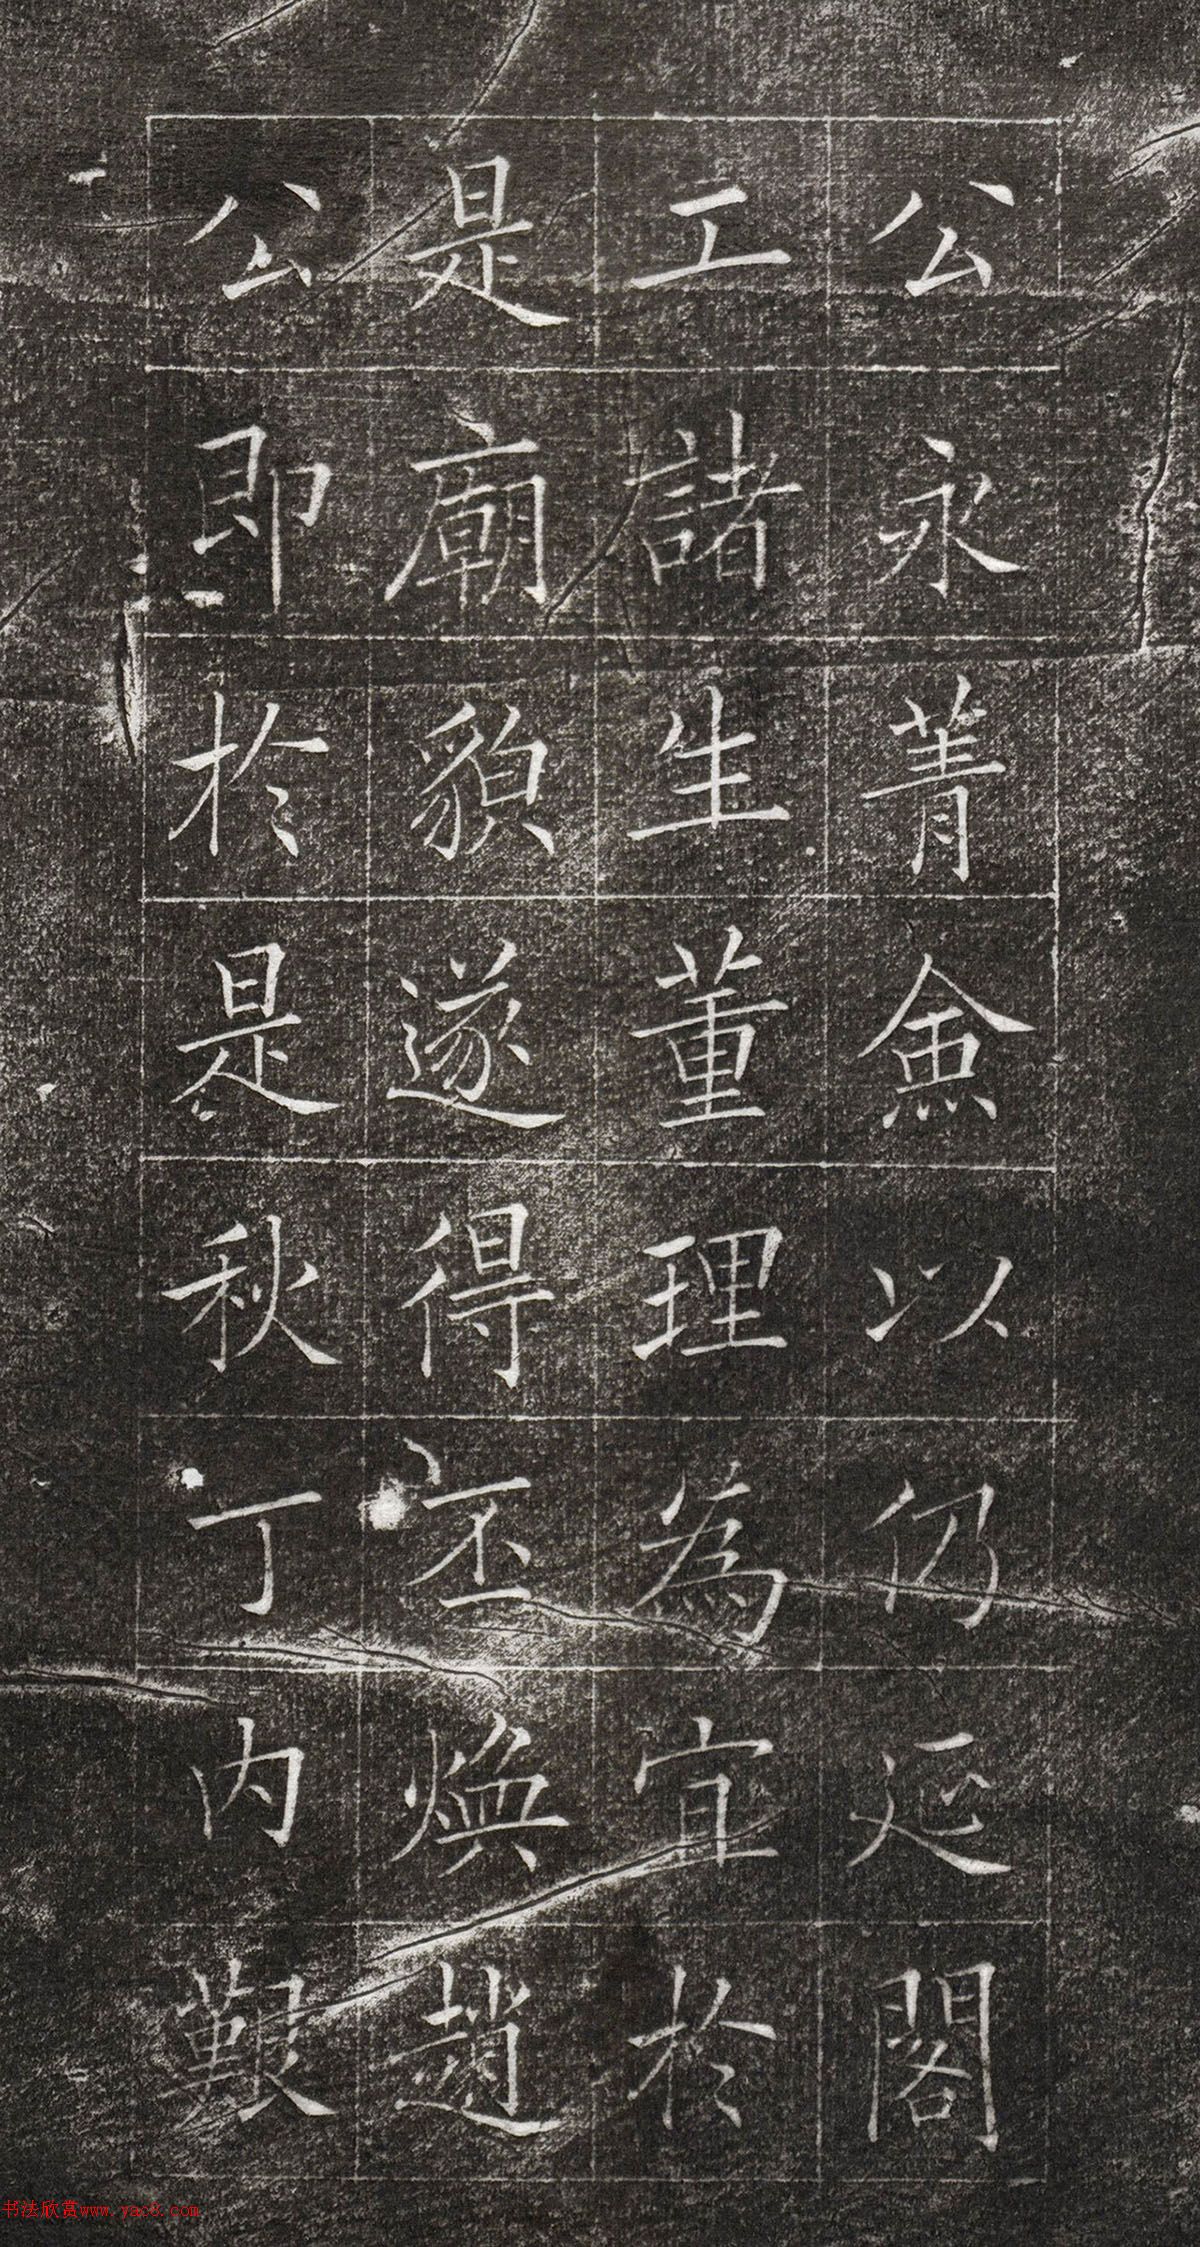 公永菁僉以仍延閣
工諸生董理為宜於
是廟貌遂得丕煥趙
公即於是秋丁內艱
书法欣赏www.yac8.com